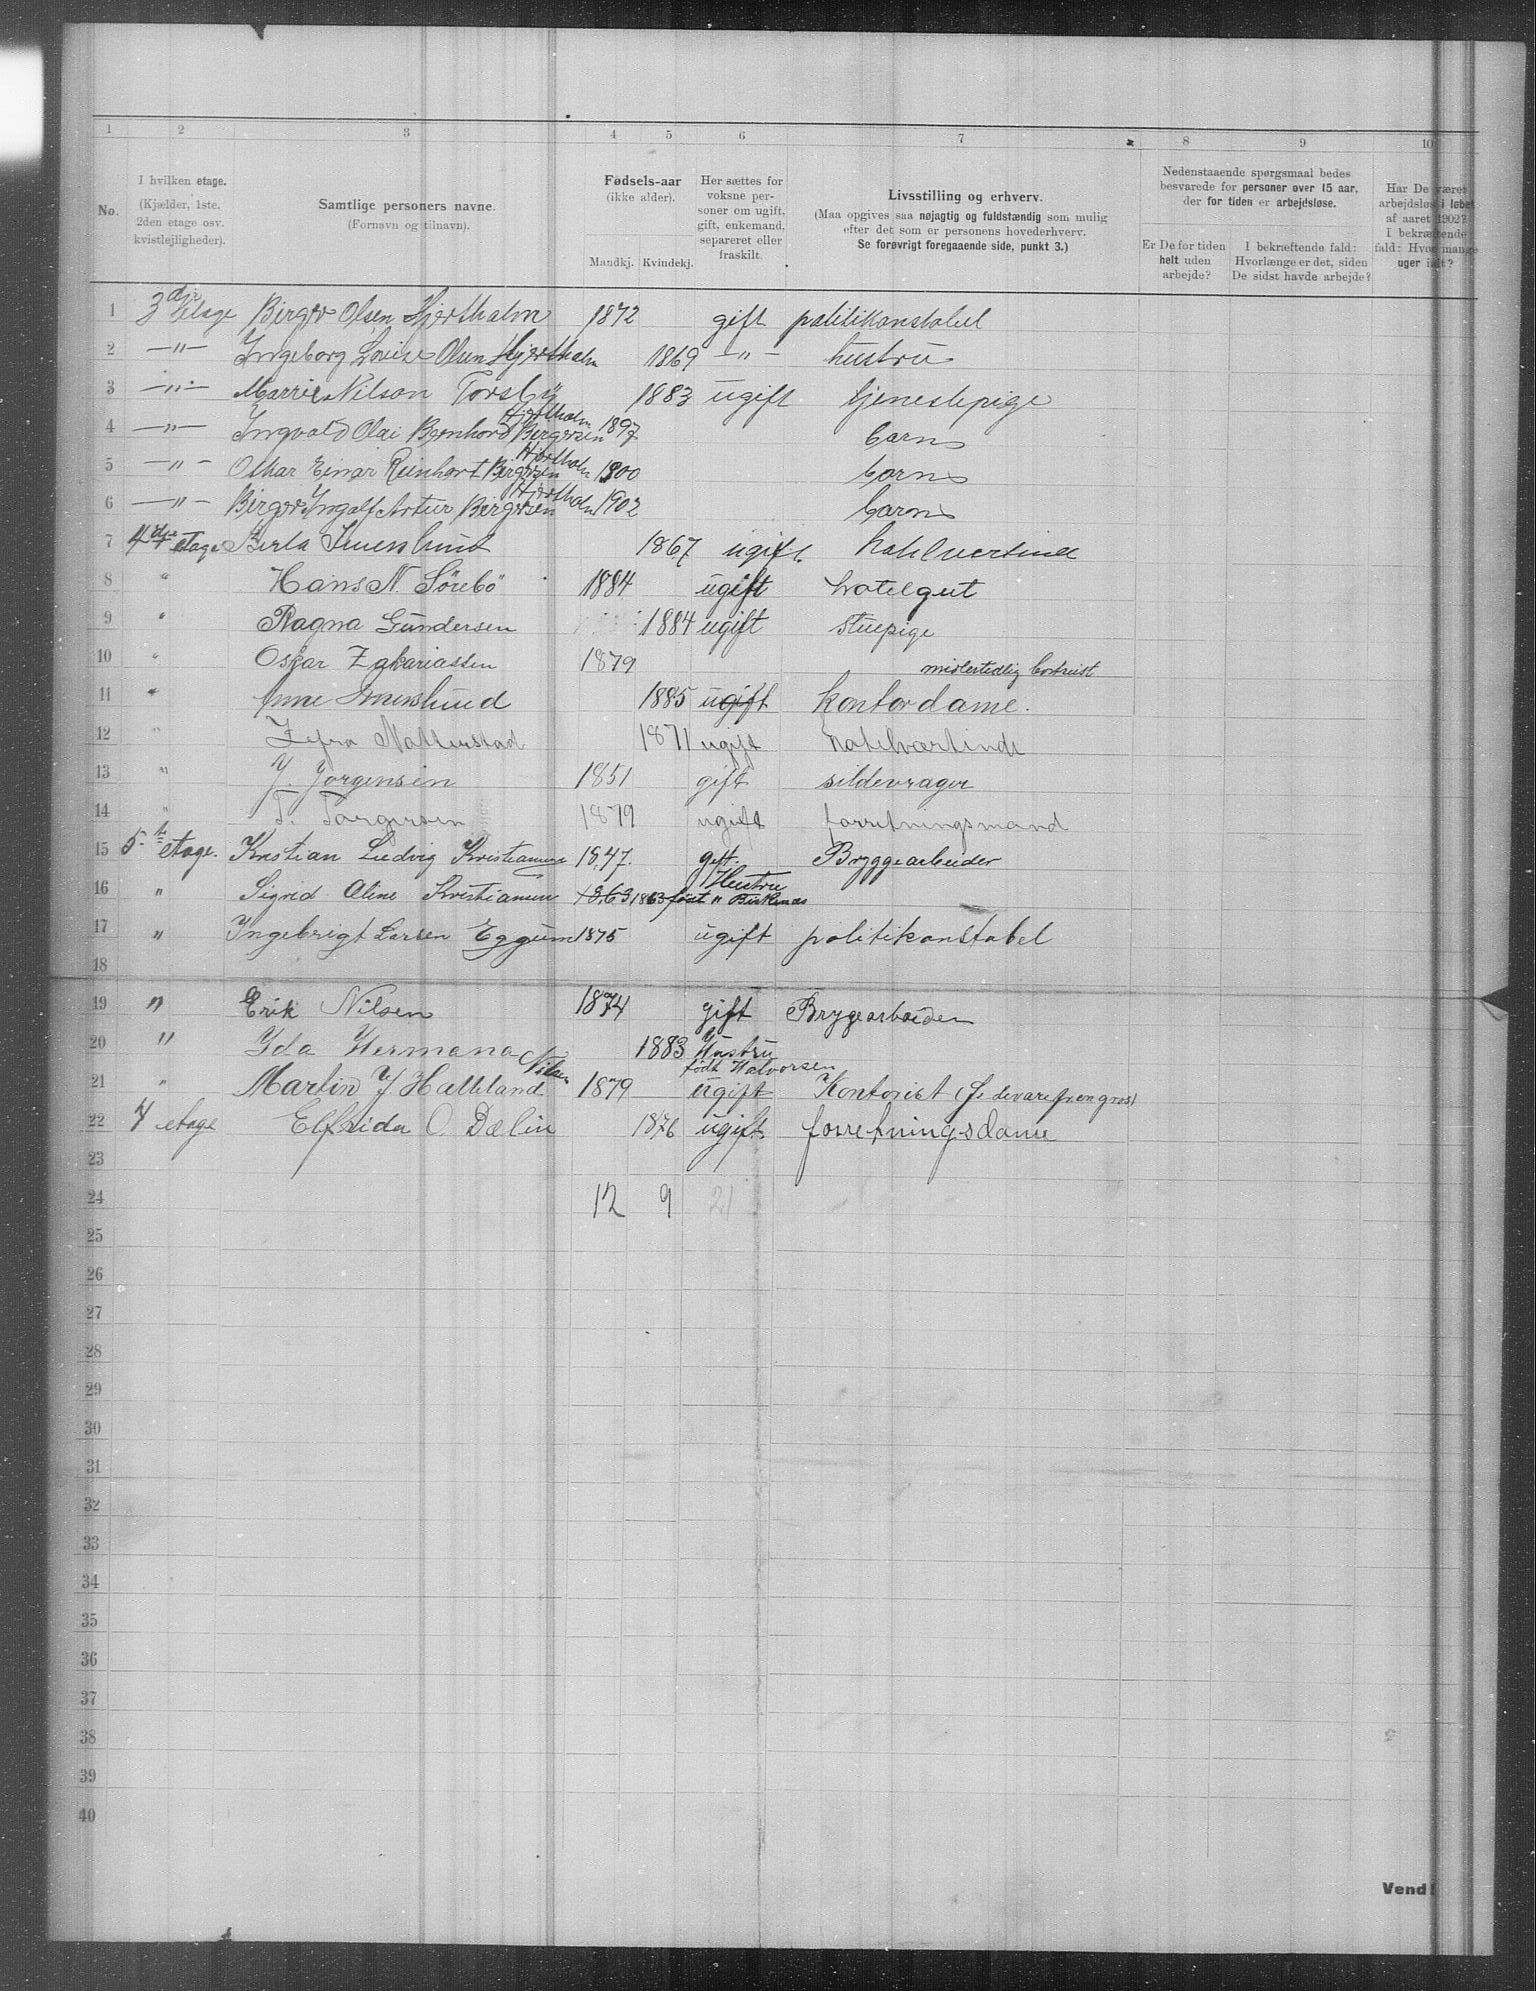 1 2 3 4 5 6 7 8 9 10
No.
I hvilken etage.
(Kjælder, 1ste.
2den etage osv.
kvistlejligheder).
Samtlige personers navne.
(Fornavn og tilnavn).
Fødsels-aar
(ikke alder).
Mandkj. Kvindekj.
Her sættes for
voksne per-
soner om ugift,
gift, enkemand,
separeret eller
fraskilt.
Livsstilling og erhverv.
(Maa opgives saa nøjagtig og fuldstændig som mulig
efter det som er personens hovederhverv.
Se forøvrigt foregaaende side, punkt 3.)
Nedenstaaende spørgsmaal bedes
besvarede for personer over 15 aar,
der for tiden er arbejdsløse.
Er De for tiden
helt uden
arbejde?
I bekræftende fald:
Hvorlænge er det, siden
De sidst havde arbejde?
Har De været
arbejdsløs i løbet
af aaret 1902?
I bekræftende
fald: Hvor mange
uger ialt?
1 3die Etage Birger Olsen Hjertholm 1872 gift politikonstabel
2 —"— Ingeborg Louise Olsen Hjertholm 1869 —"— hustru
3 —"— Marrie Nilson Torsby 1883 ugift tjenestepige
4 —"— Ingvald Olai Bernhord Bergersen Hjertholm 1897 barn
5 —"— Oskar Einar Reinhart Bergersen Hjertholm 1900 barn
6 —"— Birger Ingolf Artur Bergersen Hjertholm 1902 barn
7 4de etage Berta 1867 ugift. hotelvertinde
8 " Hans N. Sörebö 1884 ugift hotelgut
9 " Ragna Gundersen 1884 ugift stuepige
10 " Oskar Zakariassen 1879 midlertidig bortreist
11 " Anne 1885 ugift kontordame.
12 " Natterstad 1871 ugift hotelværtinde
13 " J. Jorgensen 1851 gift sildevrager
14 " T. Torgersen 1879 ugift forretningsmand
15 5te etage. Kristian Ludvig Kristiansen 1847. gift. Bryggearbeider
16 " Sigrid Oline Kristiansen 1863 1863 Hustru født " Birkenes
17 " Ingebrigt Larsen Eggum 1875 ugift politikonstabel
18
19 " Erik Nilsen 1874 gift Brygearbeider
20 " Ida Hermana Nilsen 1883 Hustru født Halvorsen
21 " Martin J Halleland 1879 ugift Kontorist
22 4 etage Elfrida O. Dælin 1876 ugift. forretningsdame
23
24 12 9 21
25
26
27
28
29
30
31
32
33
34
35
36
37
38
39
40
Vend!